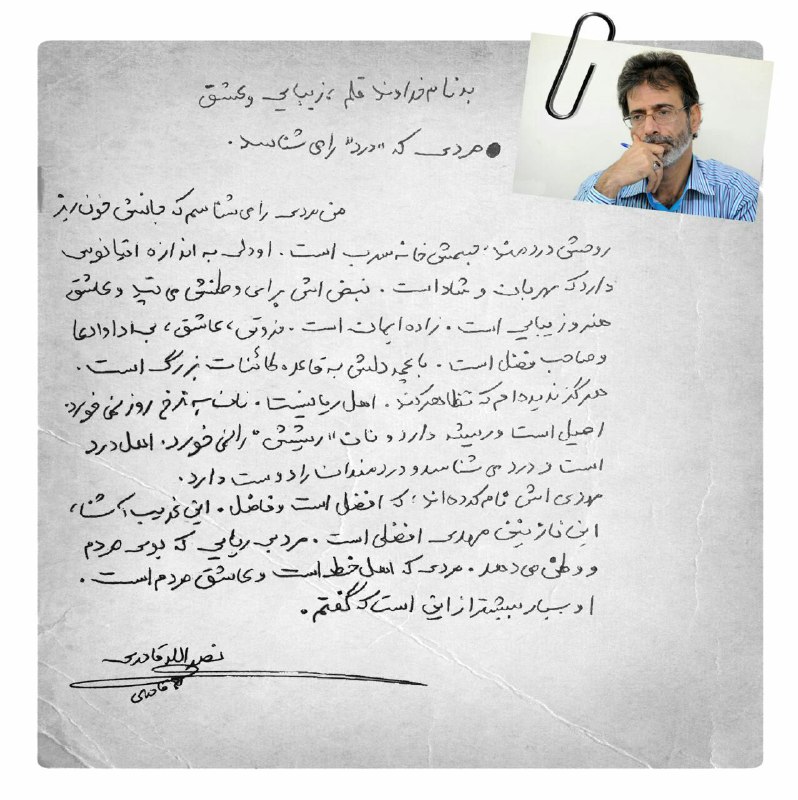 به نام خداوند قلم، زیبایی و عشق
● مردی که "درد" را می شناسد.
من مردی را می شناسم که جانش خون ریز
روحش دردمند، جسمش خانه سرب است. او دلی به اندازه اقیانوس
دارد که مهربان و شاد است. نبض اش برای وطنش می تپد و عاشق
هنر و زیبایی است. زاده ایمان است. فروتن، عاشق، بی ادا و ادعا
و صاحب فضل است. باغچه دلش به قاعده کائنات بزرگ است.
هرگز ندیده ام که تظاهر کند. اهل ریا نیست. نان به نرخ روز نمی خورد.
اصیل است و ریشه دارد و نان "ریشش" را نمی خورد. اهل درد
است و درد می شناسد و دردمندان را دوست دارد.
مهدی اش نام کرده اند، که افضل است و فاضل. این غریب آشنا،
این نازنین مهدی افضلی است. مردی دریایی که بوی مردم
و وطن می دهد. مردی که اهل خطر است و عاشق مردم است.
او بسیار بیشتر از این است که گفتم.
نصرالله قادری
قادری